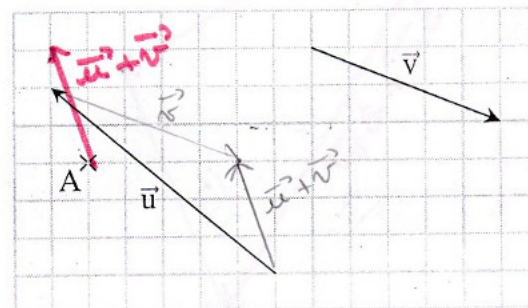 u⃗ + v⃗
v⃗
v⃗
A
u⃗
u⃗ + v⃗